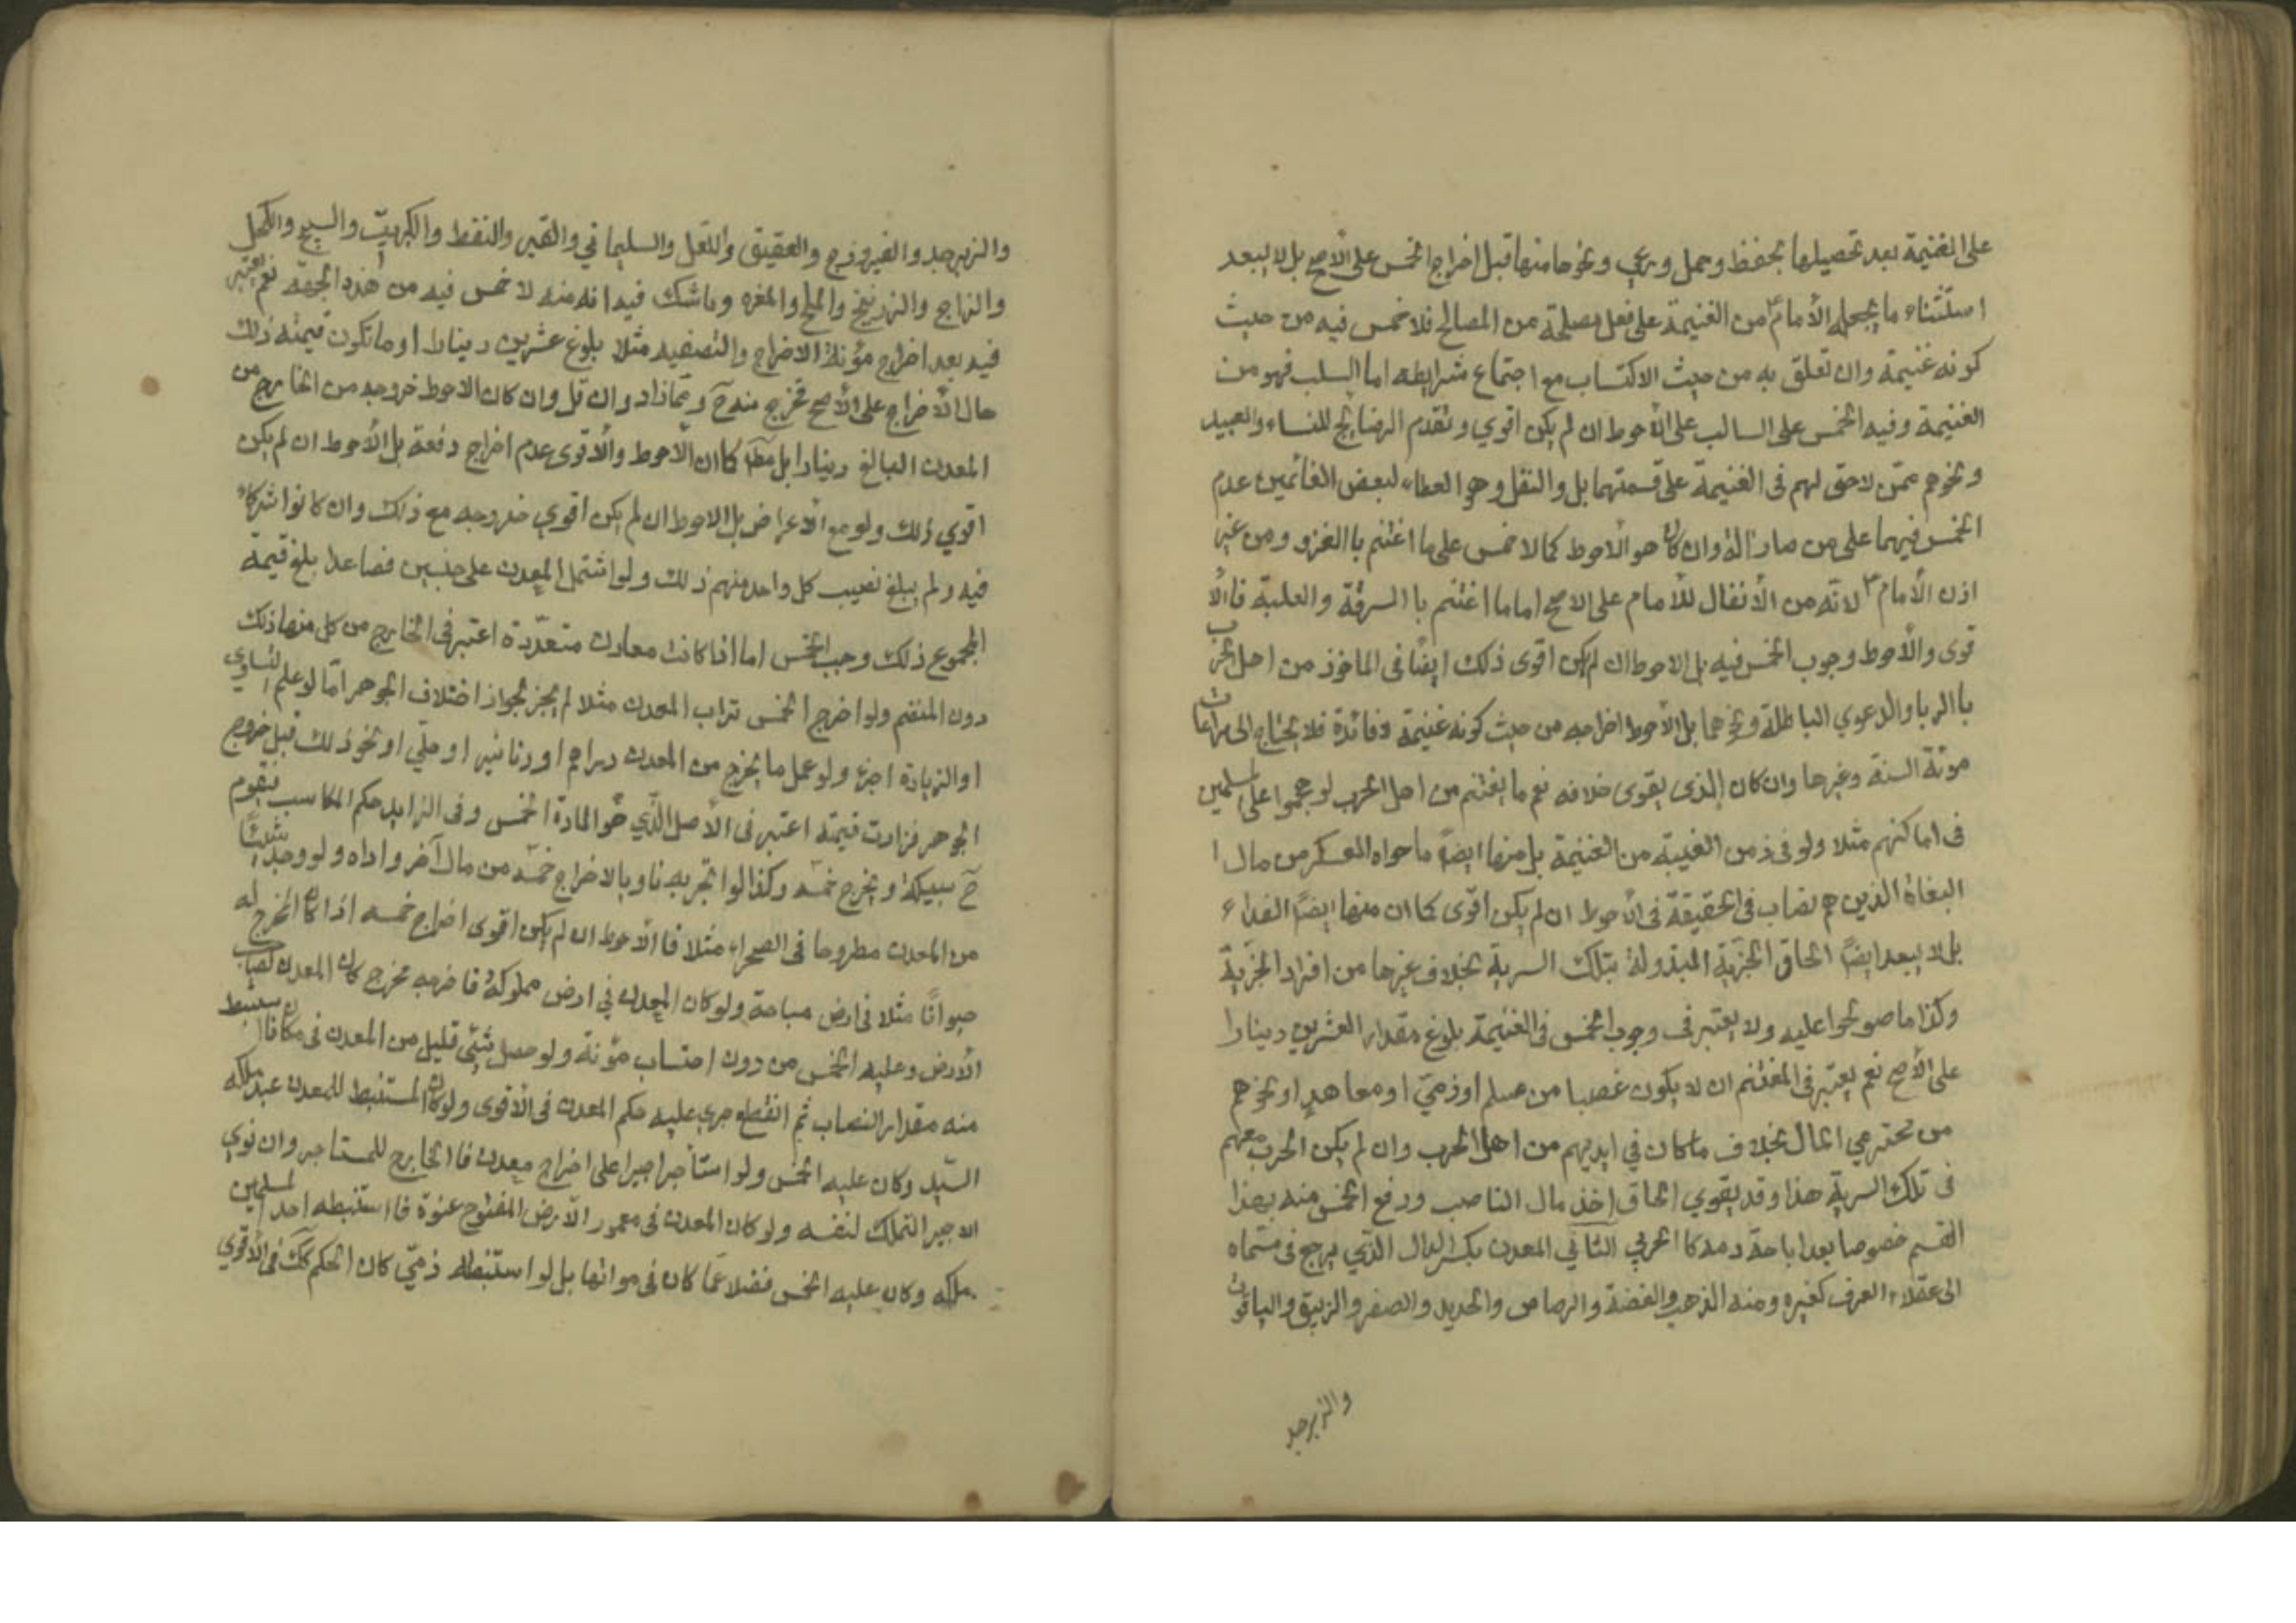 على الغنيمة بعد تحصيلها بحفظ وحمل ورعي ونحوها منها قبل اخراج الخمس على الأصح بل لا يبعد
استثناء ما يجعله الأمام ع من الغنيمة على فعل مصلحة من المصالح فلا خمس فيه من حيث
كونه غنيمة وان تعلق به من حيث الاكتساب مع اجتماع شرايطه اما السلب فهو من
الغنيمة وفيه الخمس على السالب على الأحوط ان لم يكن اقوي وتقدم الرضايخ للنساء والعبيد
ونحوهم ممّن لا حق لهم فى الغنيمة على قسمتهما بل والنفل وهو العطاء لبعض الغانمين عدم
الخمس فيهما على من صارا له وان كان هو الأحوط كما لا خمس على ما اغتنم با الغزو ومن غير
اذن الأمام ع لانّه من الأنفال للأمام على الاصح اما ما اغتنم با السرقة والغلبة فا الأ
قوى والأحوط وجوب الخمس فيه بل الاحوط ان لم يكن اقوى ذلك ايضًا فى الماخوذ من اهل الحرب
با الربا والدعوي الباطلة ونحوهما بل الأحوط اخراجه من حيث كونه غنيمة وفائدة فلا يحتاج الى مراعات
مونة السنة وغيرها وان كان الذى يقوى خلافه نعم ما يغتنم من اهل الحرب لو هجموا على المسلمين
فى اماكنهم مثلا ولو فى زمن الغيبة من الغنيمة بل منها ايضًا ما حواه العسكر من مال ا
البغاة الذين هم نصاب فى الحقيقة فى الأحوط ان لم يكن اقوى كما ان منها ايضًا الفداء
بل لا يبعد ايضًا الحاق الجزية المبذولة بتلك السرية بخلاف غيرها من افراد الجزية
وكذا ما صولحوا عليه ولا يعتبر فى وجوب الخمس فى الغنيمة بلوغ مقدار العشرين دينارا
على الأصح نعم يعتبر فى المغتنم ان لا يكون غصبا من مسلم او ذميّ او معاهدٍ او نحوهم
من محترمي المال بخلاف ما كان في ايديهم من اهل الحرب وان لم يكن الحرب معهم
فى تلك السرية هذا وقد يقوي الحاق اخذ مال الناصب ودفع الخمس منه بهذا
القسم خصوصا بعد اباحة دمه كا الحربي الثاني المعدن بكسر الدال الذي يرجع فى مسماه
الى عقلاء العرف كغيره ومنه الذهب والفضة والرصاص والحديد والصفر والزيبق والياقوت
والزبرجد
والزبرجد والفيروزج والعقيق واللعل والسليماني والقير والنفط والكبريت والسبخ والكحل
والزاج والزرنيخ والملح والمغره وما شك فيه انه منه لا خمس فيه من هذه الجهة نعم يعتبر
فيه بعد اخراج مؤنة الاخراج والتصفيه مثلا بلوغ عشرين دينارا او ما تكون قيمته ذلك
حال الأخراج على الأصح تخرج منه ح ومما زاد وان قل وان كان الاحوط خروجه من الخارج من
المعدن البالغ دينارا بل مطا كا ان الأحوط والأقوى عدم اخراج دفعة بل الأحوط ان لم يكن
اقوي ذلك ولو مع الأعراض بل الاحوط ان لم يكن اقوي خروجه مع ذلك وان كانوا شركاء
فيه ولم يبلغ نصيب كل واحد منهم ذلك ولو اشتمل المعدن على جنسين فصاعدا بلغ قيمة
المجموع ذلك وجب الخمس اما اذا كانت معادن متعدّدة اعتبر فى الخارج من كل منها ذلك
دون المنضم ولو اخرج الخمس تراب المعدن مثلا لم يجز لجواز اختلاف الجوهر امّا لو علم التساوي
او الزيادة اجزء ولو عمل ما يخرج من المعدن دراهم او دنانير او حليّ او نحو ذلك قبل خروج
الجوهر فزادت قيمته اعتبر فى الأصل الّذي هو المادة الخمس وفى الزايد حكم المكاسب فيقوم
ح سبيكة ويخرج خمسه وكذا لو اتجر به ناويا لاخراج خمسه من مال آخر واداه ولو وجد شيئًا
من المعدن مطروحا فى الصحراء مثلا فا الأحوط ان لم يكن اقوى اخراج خمسه اذا كان المخرج له
حيوانًا مثلا فى ارض مباحة ولو كان المعدن في ارض مملوكة فاخرجه مخرج كان المعدن لصاحب
الأرض وعليه الخمس من دون احتساب مؤنة ولو حصل شئي قليل من المعدن فى مكان فاستنبط
منه مقدار النصاب ثم انقطع جرى عليه حكم المعدن فى الأقوى ولو كان المستنبط للمعدن عبد ملكه
السّيد وكان عليه الخمس ولو استأجر اجيرا على اخراج معدن فا الخارج للمستاجر وان نوي
الاجير التملك لنفسه ولو كان المعدن فى معمور الأرض المفتوح عنوة فا استنبطه احد المسلمين
ملكه وكان عليه الخمس فضلا عما كان فى مواتها بل لو استنبطه ذمّي كان الحكم كك فى الأقوي